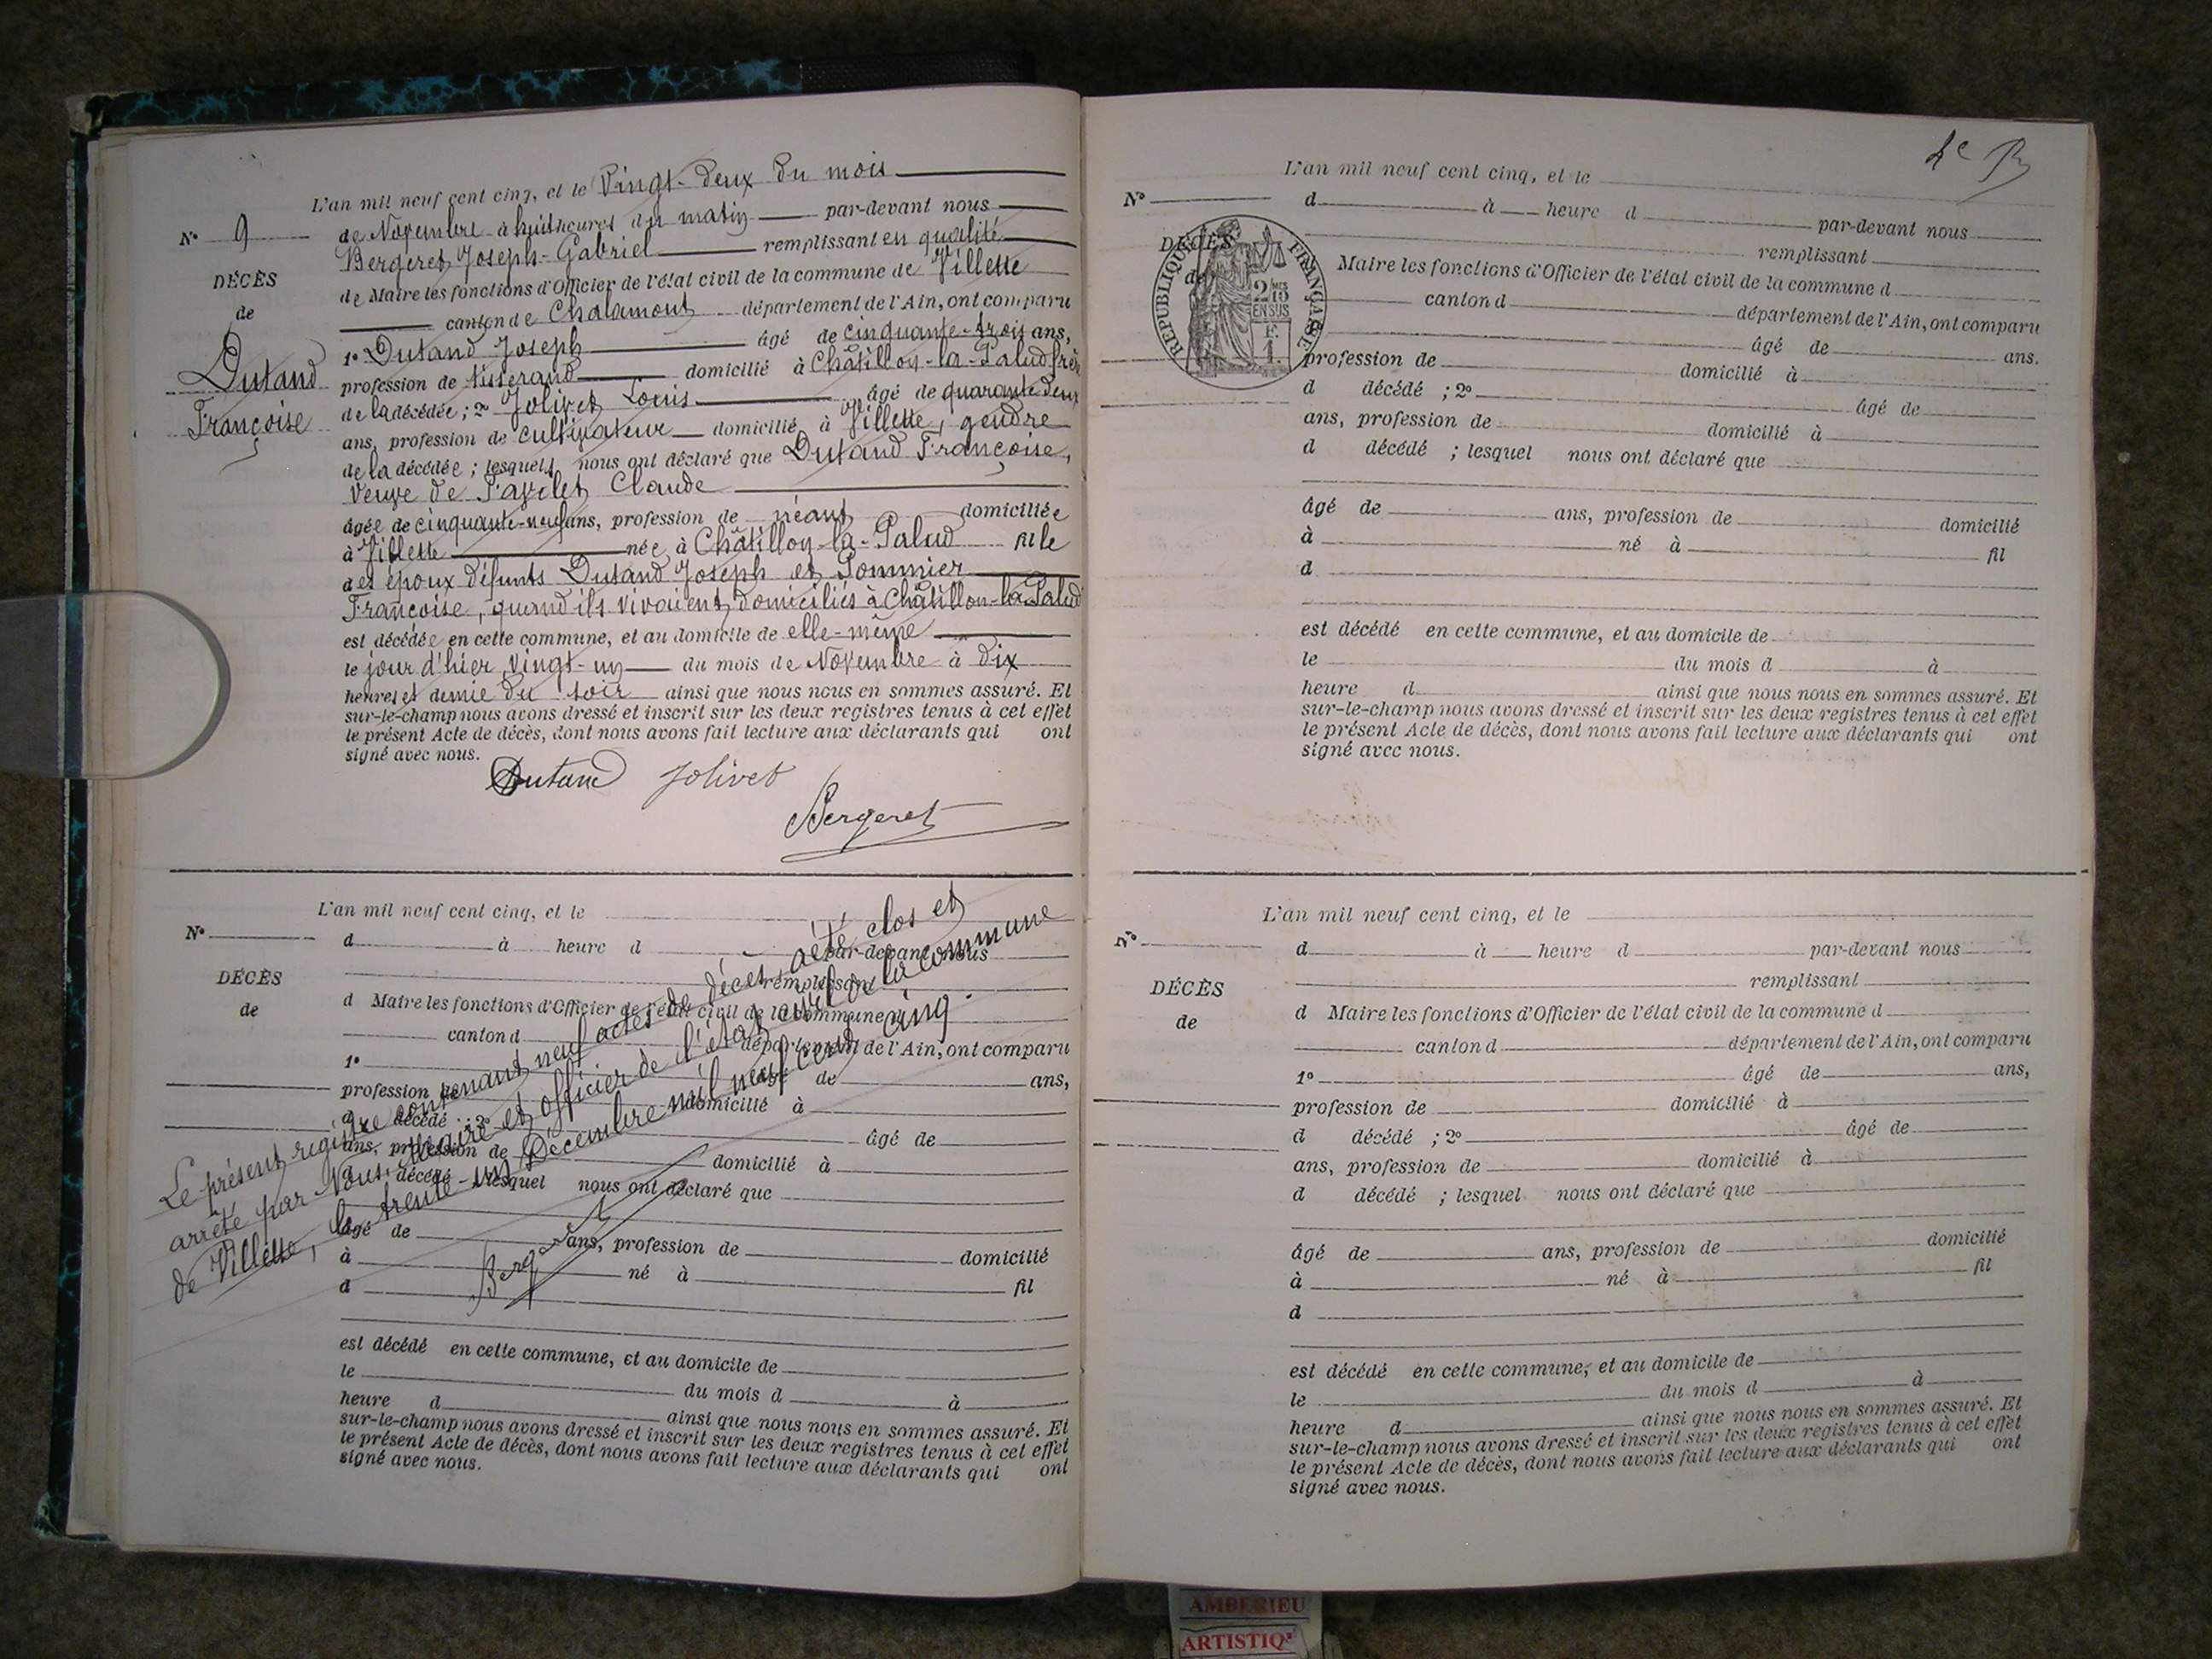 L'an mil neuf cent cinq, et le Vingt-deux du mois
N° 9
de Novembre à huit heures du matin par-devant nous
Bergeret Joseph-Gabriel remplissant en qualité
DÉCÈS
de Maire les fonctions d'Officier de l'état civil de la commune de Villette
de
canton de Chalamont département de l'Ain, ont comparu
1° Dutand Joseph âgé de cinquante-trois ans,
Dutand
profession de tisserand domicilié à Châtillon-la-Palud frère
de la décédée ; 2° Jolivet Louis âgé de quarante deux
Françoise
ans, profession de cultivateur domicilié à Villette, gendre
de la décédée ; lesquels nous ont déclaré que Dutand Françoise,
Veuve de Pavelet Claude
âgée de cinquante-neuf ans, profession de néant domiciliée
à Villette née à Châtillon-la-Palud fille
des époux défunts Dutand Joseph et Pommier
Françoise, quand ils vivaient domiciliés à Châtillon-la-Palud
est décédée en cette commune, et au domicile de elle-même
le jour d'hier vingt-un du mois de Novembre à dix
heures et demie du soir ainsi que nous nous en sommes assuré. Et
sur-le-champ nous avons dressé et inscrit sur les deux registres tenus à cet effet
le présent Acte de décès, dont nous avons fait lecture aux déclarants qui ont
signé avec nous.
Dutand Jolivet
Bergeret
L'an mil neuf cent cinq, et le
N°
d à heure d par-devant nous
remplissant
DÉCÈS
d Maire les fonctions d'Officier de l'état civil de la commune d
de
canton d département de l'Ain, ont comparu
1° âgé de ans,
profession de domicilié à
d décédé ; 2° âgé de
ans, profession de domicilié à
d décédé ; lesquel nous ont déclaré que
âgé de ans, profession de domicilié
à né à fil
d
est décédé en cette commune, et au domicile de
le du mois d à
heure d ainsi que nous nous en sommes assuré. Et
sur-le-champ nous avons dressé et inscrit sur les deux registres tenus à cet effet
le présent Acte de décès, dont nous avons fait lecture aux déclarants qui ont
signé avec nous.
Le présent registre contenant neuf actes de décès a été clos et
arrêté par Nous, Maire et officier de l'état civil de la commune
de Villette, le trente-un Décembre mil neuf cent cinq.
4e
L'an mil neuf cent cinq, et le
N°
d à heure d par-devant nous
remplissant
DÉCÈS
de
RÉPUBLIQUE FRANÇAISE
2/10MES
EN SUS
F.
1.
Maire les fonctions d'Officier de l'état civil de la commune d
canton d département de l'Ain, ont comparu
âgé de ans.
profession de domicilié à
d décédé ; 2° âgé de
ans, profession de domicilié à
d décédé ; lesquel nous ont déclaré que
âgé de ans, profession de domicilié
à né à fil
d
est décédé en cette commune, et au domicile de
le du mois d à
heure d ainsi que nous nous en sommes assuré. Et
sur-le-champ nous avons dressé et inscrit sur les deux registres tenus à cet effet
le présent Acte de décès, dont nous avons fait lecture aux déclarants qui ont
signé avec nous.
L'an mil neuf cent cinq, et le
N°
d à heure d par-devant nous
remplissant
DÉCÈS
d Maire les fonctions d'Officier de l'état civil de la commune d
de
canton d département de l'Ain, ont comparu
1° âgé de ans,
profession de domicilié à
d décédé ; 2° âgé de
ans, profession de domicilié à
d décédé ; lesquel nous ont déclaré que
âgé de ans, profession de domicilié
à né à fil
d
est décédé en cette commune, et au domicile de
le du mois d à
heure d ainsi que nous nous en sommes assuré. Et
sur-le-champ nous avons dressé et inscrit sur les deux registres tenus à cet effet
le présent Acte de décès, dont nous avons fait lecture aux déclarants qui ont
signé avec nous.
AMBERIEU
ARTISTIQ